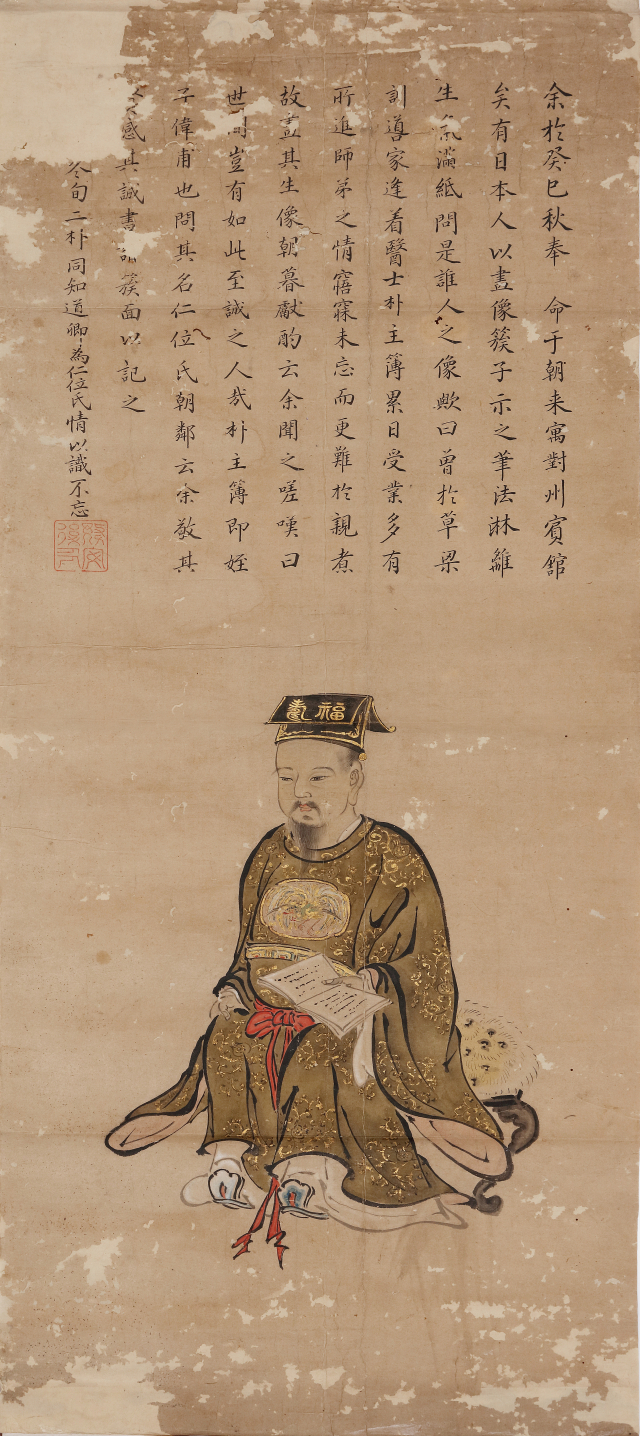 余於癸巳秋奉　命于朝来寓對州賓舘
矣有日本人以畫像簇子示之筆法淋離
生氣滿紙問是誰人之像歟曰曾於草梁
訓導家逢着醫士朴主簿累日受業多有
所進師弟之情寤寐未忘而更難於親煮
故畫其生像朝暮獻酌云余聞之嗟嘆曰
世間豈有如此至誠之人哉朴主簿即姪
子偉甫也問其名仁位氏朝鄰云余敬其
感其誠書諸簇面以記之
冬旬二朴同知道卿為仁位氏情以識不忘
福壽